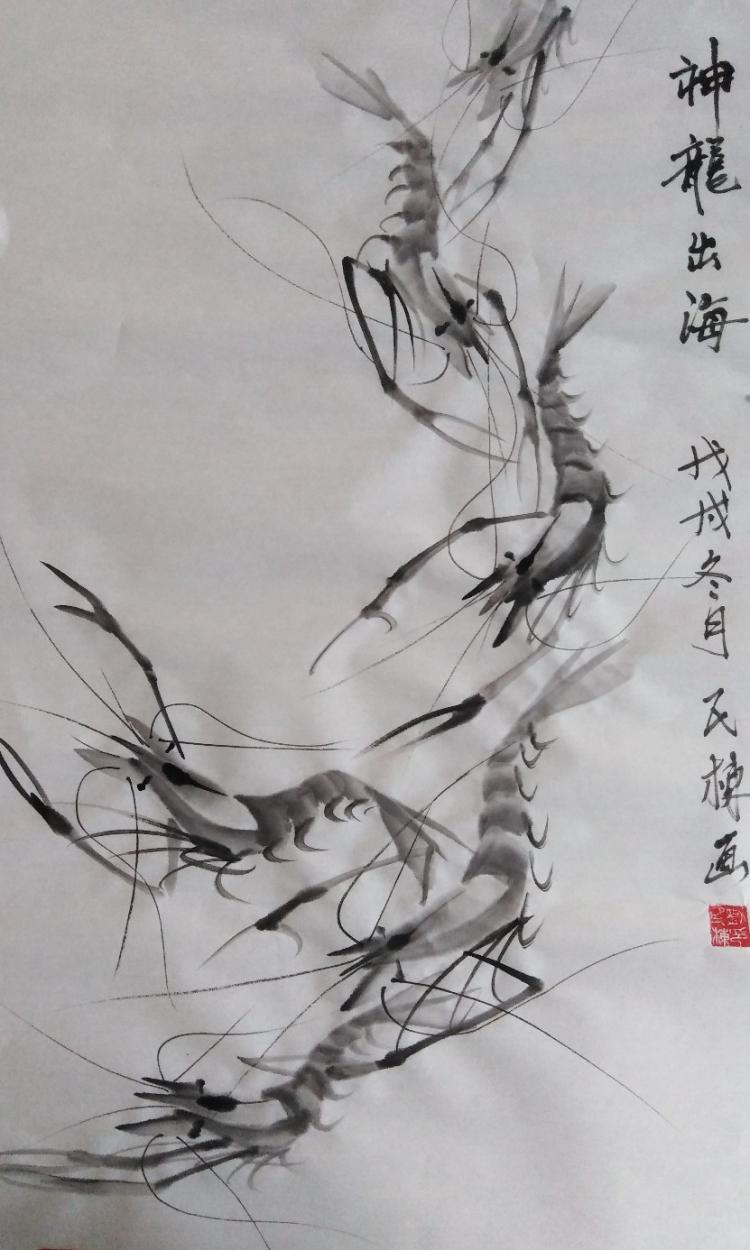 神龍出海 戊戌冬月 民棟画